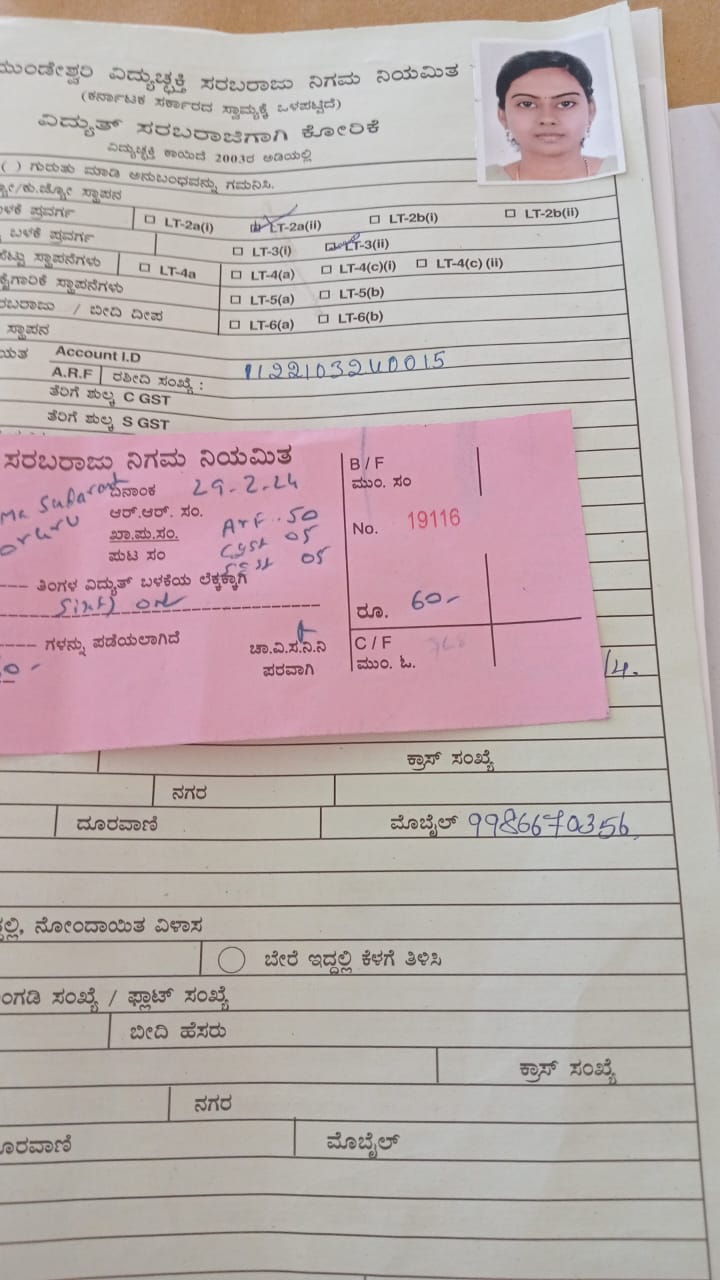 ಮುಂಡೇಶ್ವರಿ ವಿದ್ಯುಚ್ಛಕ್ತಿ ಸರಬರಾಜು ನಿಗಮ ನಿಯಮಿತ
(ಕರ್ನಾಟಕ ಸರ್ಕಾರದ ಸ್ವಾಮ್ಯಕ್ಕೆ ಒಳಪಟ್ಟಿದೆ)
ವಿದ್ಯುತ್ ಸರಬರಾಜಿಗಾಗಿ ಕೋರಿಕೆ
ವಿದ್ಯುಚ್ಛಕ್ತಿ ಕಾಯಿದೆ 2003ರ ಅಡಿಯಲ್ಲಿ
( ) ಗುರುತು ಮಾಡಿ ಅನುಬಂಧವನ್ನು ಗಮನಿಸಿ.
ಸ್ಥಾಪನ
ಬಳಕೆ ಪ್ರವರ್ಗ LT-2a(i) LT-2a(ii) LT-2b(i) LT-2b(ii)
ಬಳಕೆ ಪ್ರವರ್ಗ LT-3(i) LT-3(ii)
ಸ್ಥಾಪನೆಗಳು LT-4a LT-4(a) LT-4(c)(i) LT-4(c) (ii)
ಕೈಗಾರಿಕೆ ಸ್ಥಾಪನೆಗಳು LT-5(a) LT-5(b)
ರಬರಾಜು / ಬೀದಿ ದೀಪ LT-6(a) LT-6(b)
ಸ್ಥಾಪನ
ಯತ Account I.D
A.R.F ರಶೀದಿ ಸಂಖ್ಯೆ :
ತೆರಿಗೆ ಶುಲ್ಕ C GST
ತೆರಿಗೆ ಶುಲ್ಕ S GST
ಸರಬರಾಜು ನಿಗಮ ನಿಯಮಿತ
ದಿನಾಂಕ 29-2-24
ಆರ್.ಆರ್. ಸಂ.
ಖಾ.ಪು.ಸಂ. ArF-50
ಪುಟ ಸಂ Cgst 05
05
ತಿಂಗಳ ವಿದ್ಯುತ್ ಬಳಕೆಯ ಲೆಕ್ಕಕ್ಕಾಗಿ
ಗಳನ್ನು ಪಡೆಯಲಾಗಿದೆ
ಚಾ.ವಿ.ಸ.ನಿ.ನಿ
ಪರವಾಗಿ
B / F
ಮುಂ. ಸಂ
No. 19116
ರೂ. 60-
C / F
ಮುಂ. ಓ.
14.
ಕ್ರಾಸ್ ಸಂಖ್ಯೆ
ನಗರ
ದೂರವಾಣಿ ಮೊಬೈಲ್ 9986670356
ದ್ದಲ್ಲಿ, ನೋಂದಾಯಿತ ವಿಳಾಸ
ಬೇರೆ ಇದ್ದಲ್ಲಿ ಕೆಳಗೆ ತಿಳಿಸಿ
ಂಗಡಿ ಸಂಖ್ಯೆ / ಫ್ಲಾಟ್ ಸಂಖ್ಯೆ
ಬೀದಿ ಹೆಸರು
ಕ್ರಾಸ್ ಸಂಖ್ಯೆ
ನಗರ
ದೂರವಾಣಿ ಮೊಬೈಲ್